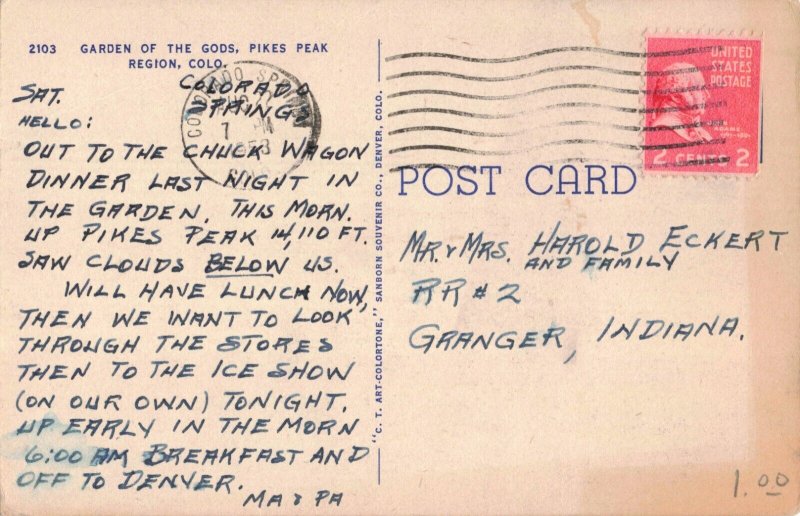 2103 GARDEN OF THE GODS, PIKES PEAK
REGION, COLO.
SAT. COLORADO
SPRINGS
HELLO:
OUT TO THE CHUCK WAGON
DINNER LAST NIGHT IN
THE GARDEN. THIS MORN.
UP PIKES PEAK 14,110 FT.
SAW CLOUDS BELOW US.
WILL HAVE LUNCH NOW,
THEN WE WANT TO LOOK
THROUGH THE STORES
THEN TO THE ICE SHOW
(ON OUR OWN) TONIGHT.
UP EARLY IN THE MORN
6:00 AM BREAKFAST AND
OFF TO DENVER.
MA & PA
"C. T. ART-COLORTONE," SANBORN SOUVENIR CO., DENVER, COLO.
COLORADO SPRINGS
7 PM
1958
UNITED
STATES
POSTAGE
ADAMS
2 CENTS 2
POST CARD
MR. & MRS. HAROLD ECKERT
AND FAMILY
RR #2
GRANGER, INDIANA.
1.00